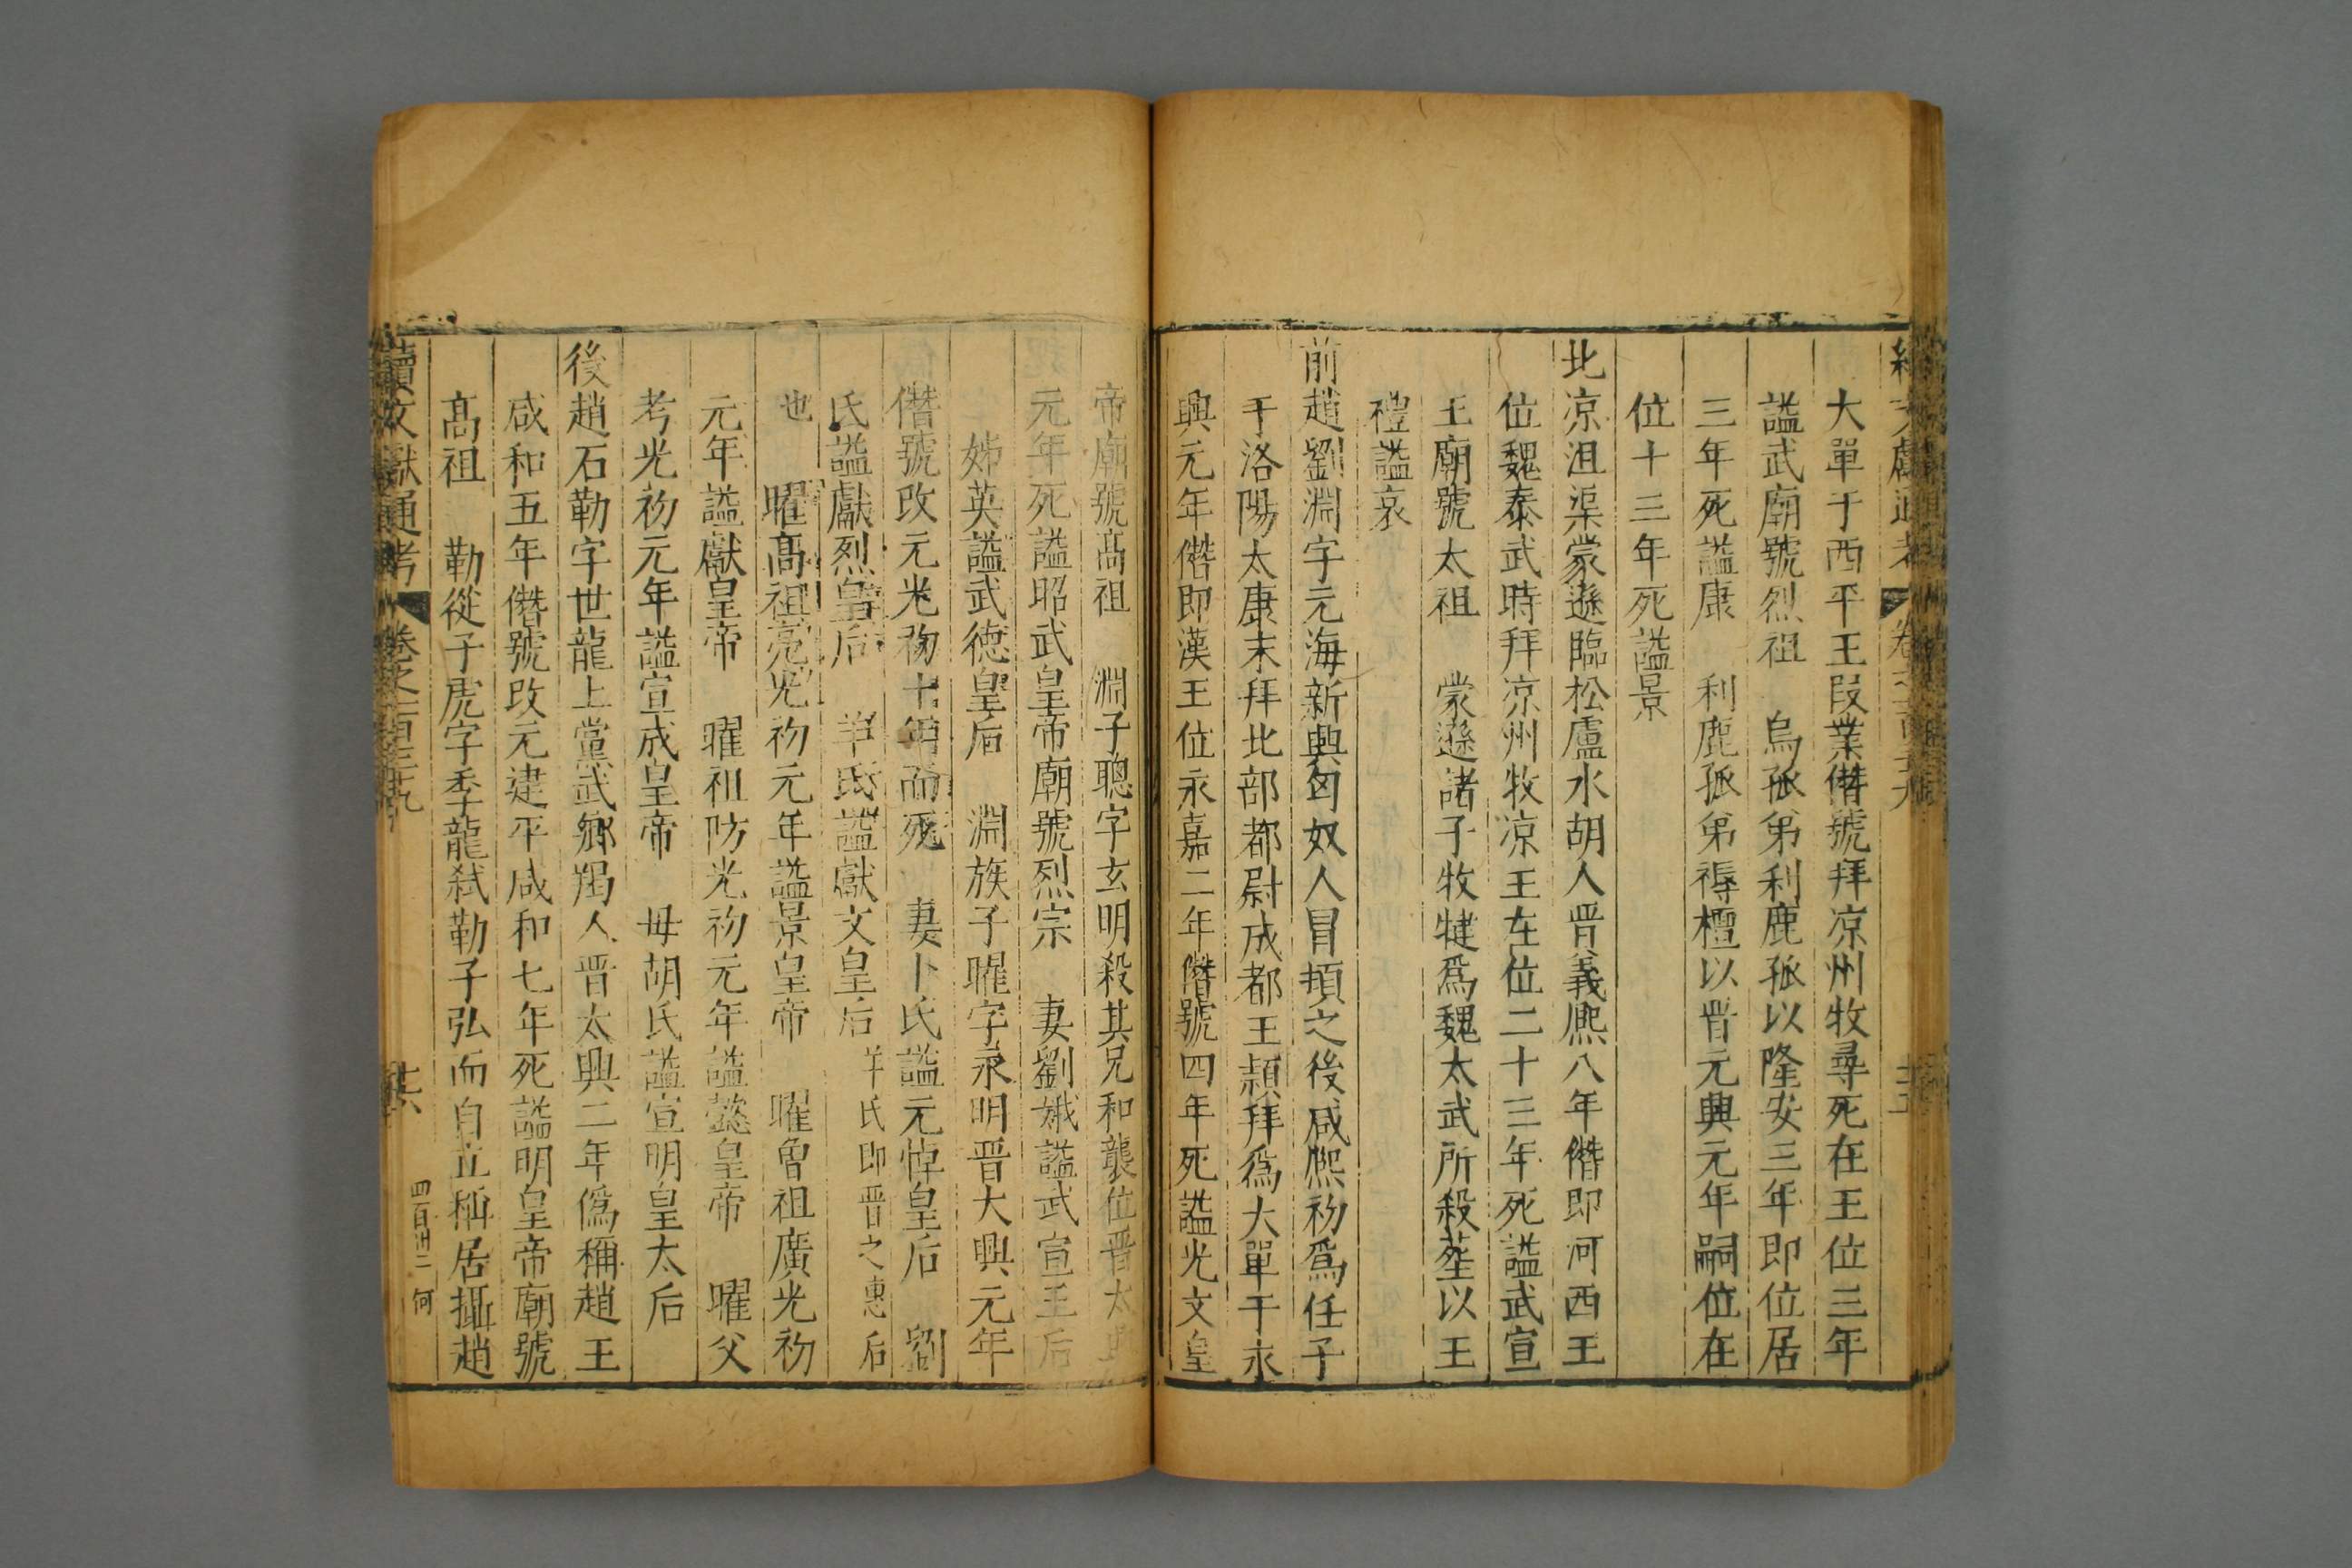 大單于西平王叚業僭號拜凉州牧尋死在王位三年
謚武廟號烈祖　烏孤弟利鹿孤以隆安三年即位居
三年死謚康　利鹿孤弟禣檀以晋元興元年嗣位在
位十三年死謚景
北凉沮渠蒙遜臨松盧水胡人晋義熈八年僭即河西王
位魏泰武時拜凉州牧凉王在位二十三年死謚武宣
王廟號太祖　蒙遜諸子牧犍爲魏太武所殺塟以王
禮謚哀
前趙劉淵字元海新興匈奴人冒頓之後咸熈初爲任子
于洛陽太康末拜北部都尉成都王頴拜爲大單于永
興元年僭即漢王位永嘉二年僭號四年死謚光文皇
帝廟號高祖　淵子聰字玄明殺其兄和襲位晋太興
元年死謚昭武皇帝廟號烈宗　妻劉娥謚武宣王后
姊英謚武德皇后　淵族子曜字永明晋大興元年
僭號改元光初十年而死　妻卜氏謚元悼皇后　劉
氏謚獻烈皇后　羊氏謚獻文皇后羊氏即晋之惠后
也　曜高祖亮光初元年謚景皇帝　曜曾祖廣光初
元年謚獻皇帝　曜祖防光初元年謚懿皇帝　曜父
考光初元年謚宣成皇帝　母胡氏謚宣明皇太后
後趙石勒字世龍上黨武鄉羯人晋太興二年僞稱趙王
咸和五年僭號改元建平咸和七年死謚明皇帝廟號
高祖　勒從子虎字季龍弑勒子弘而自立稱居攝趙
續文獻通考　卷之一百三十九　十六　四百卅二　何